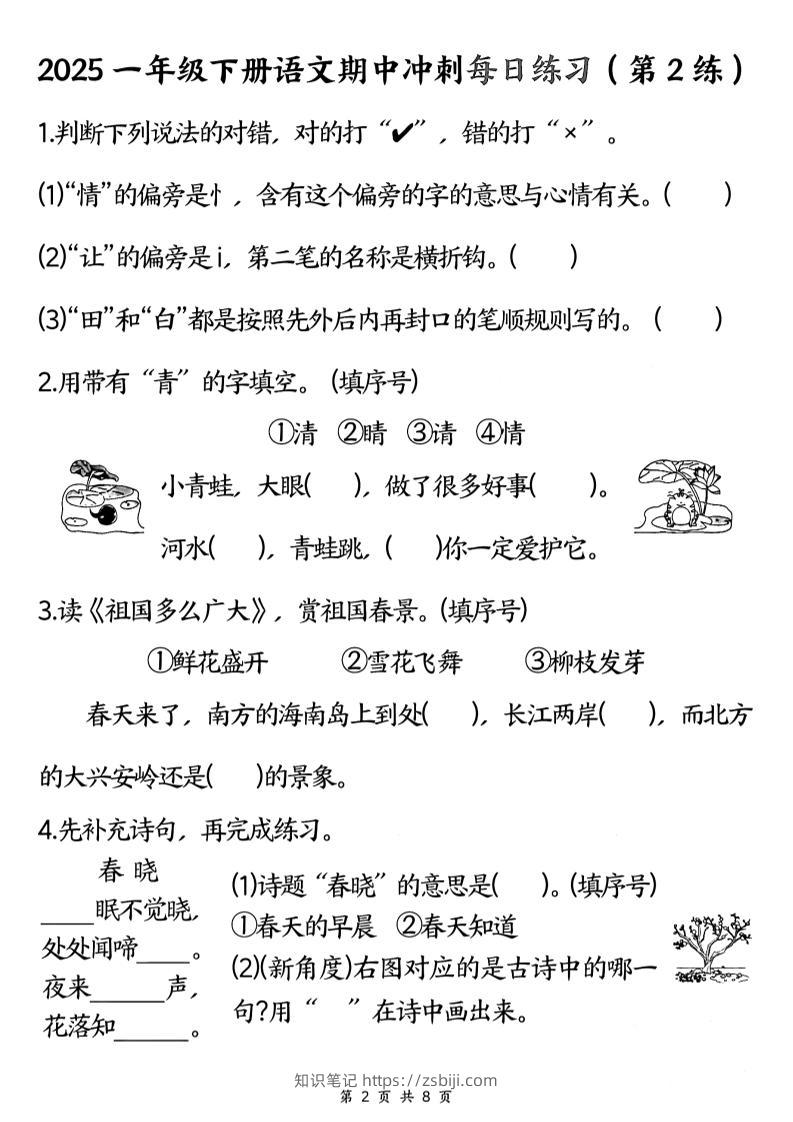 2025 一年级下册语文期中冲刺每日练习（第 2 练）
1.判断下列说法的对错，对的打“✔”，错的打“×”。
(1)“情”的偏旁是忄，含有这个偏旁的字的意思与心情有关。(　　)
(2)“让”的偏旁是i，第二笔的名称是横折钩。(　　)
(3)“田”和“白”都是按照先外后内再封口的笔顺规则写的。(　　)
2.用带有“青”的字填空。(填序号)
①清 ②晴 ③请 ④情
小青蛙，大眼(　　)，做了很多好事(　　)。
河水(　　)，青蛙跳，(　　)你一定爱护它。
3.读《祖国多么广大》，赏祖国春景。(填序号)
①鲜花盛开 ②雪花飞舞 ③柳枝发芽
春天来了，南方的海南岛上到处(　　)，长江两岸(　　)，而北方
的大兴安岭还是(　　)的景象。
4.先补充诗句，再完成练习。
春 晓
____眠不觉晓，
处处闻啼____。
夜来______声，
花落知______。
(1)诗题“春晓”的意思是(　　)。(填序号)
①春天的早晨 ②春天知道
(2)(新角度)右图对应的是古诗中的哪一
句?用“　”在诗中画出来。
知识笔记 https://zsbiji.com
第 2 页 共 8 页